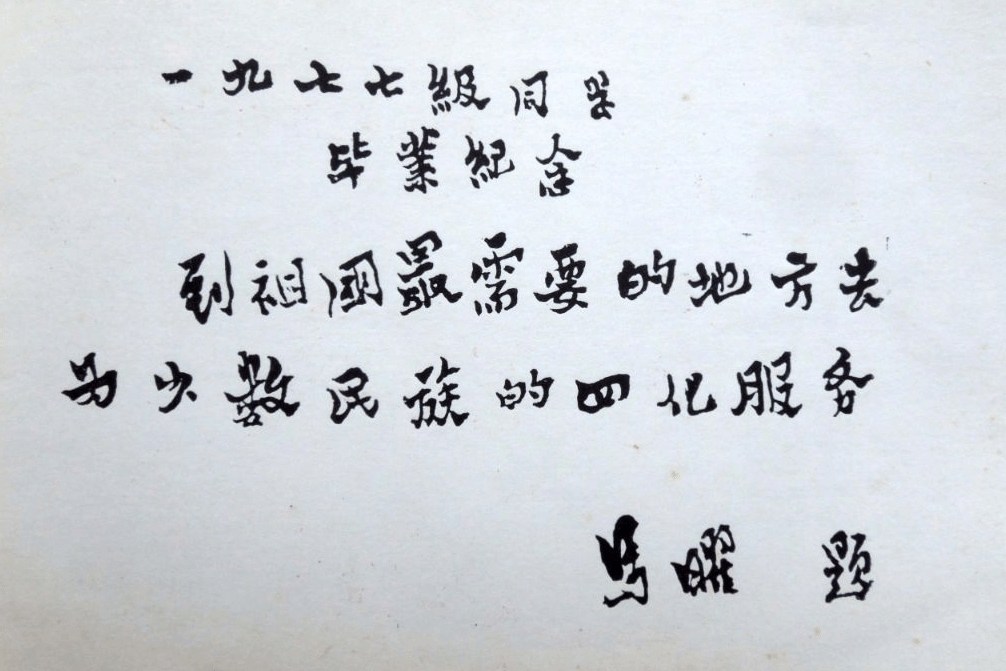 一九七七級同学
毕業紀念
到祖國最需要的地方去
为少数民族的四化服务
馬曜 题